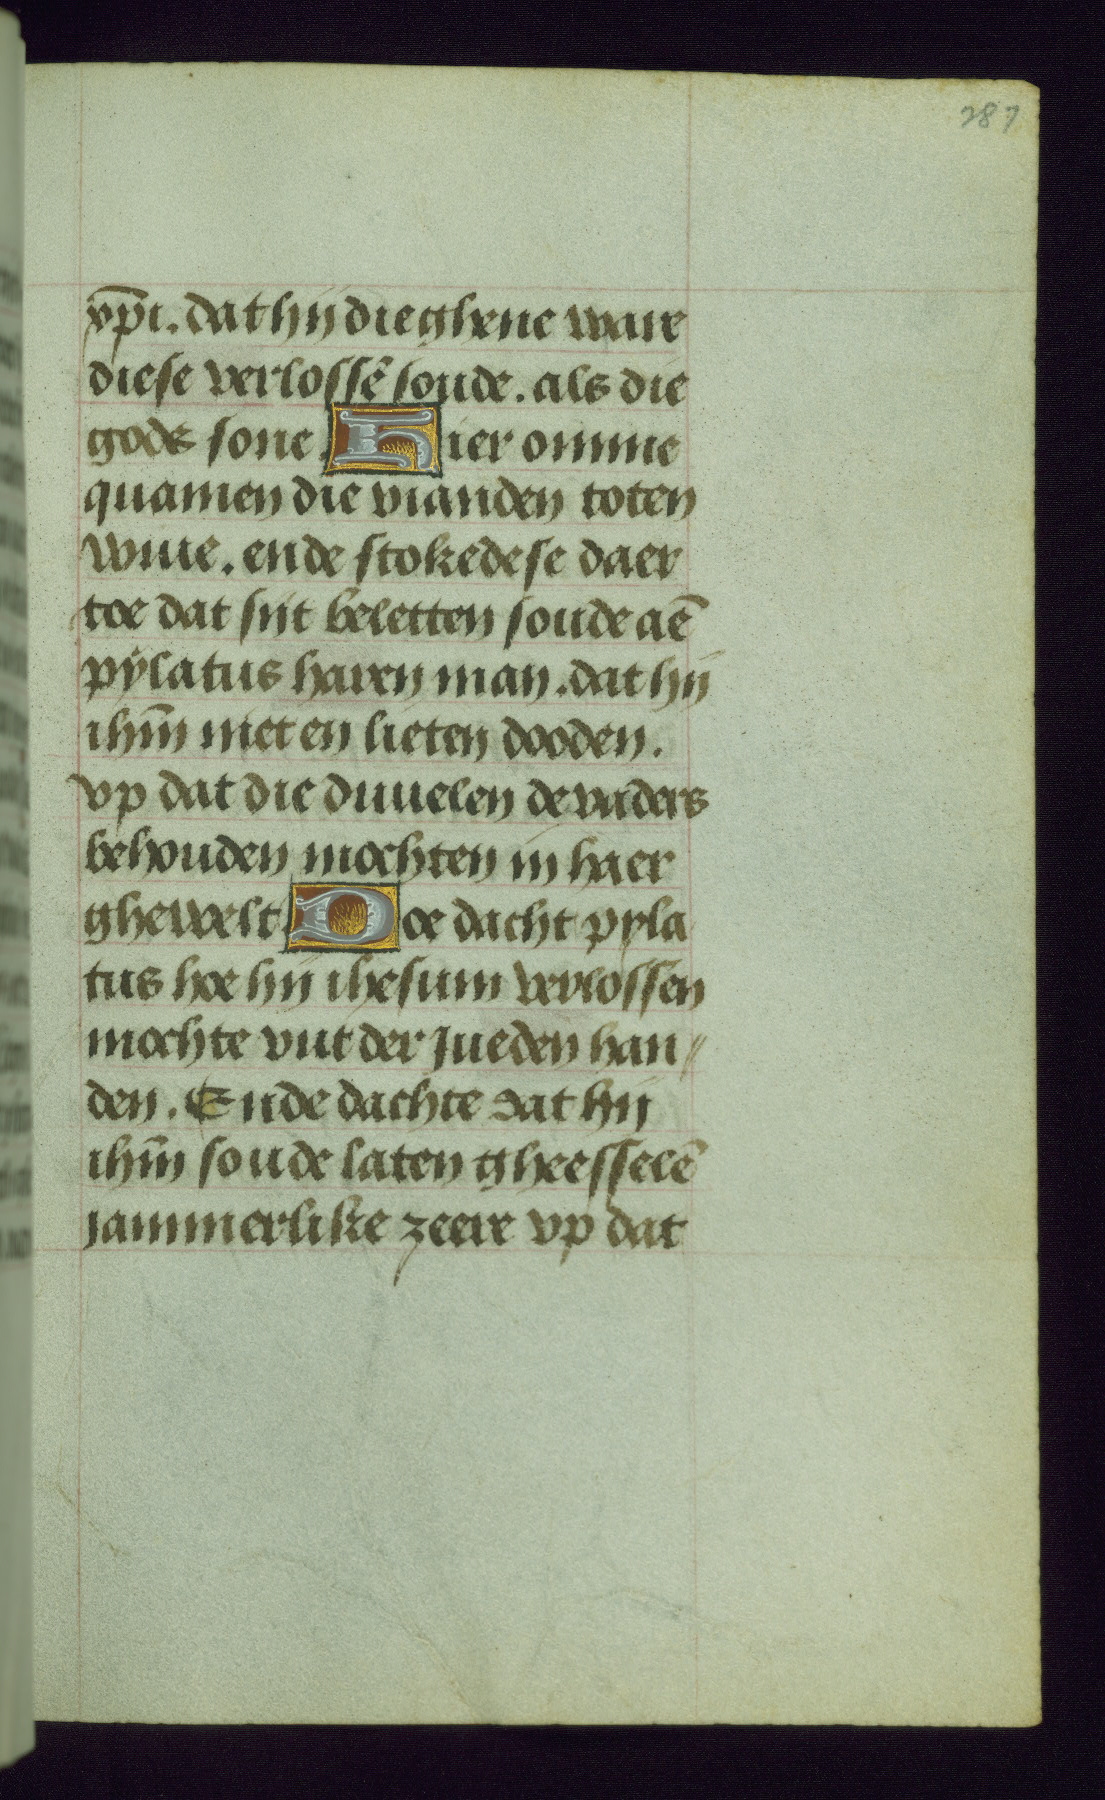 287
xp̄i. dat hij die ghene ware
diese verlossē soude. als die
gods sone. Hier omme
quamen die vianden toten
wiue. ende stokedese daer
toe dat sijt beletten soude aē
pÿlatus haren man. dat hij
ihm̄ niet en lieten dooden.
vp dat die duuelen de vaders
behouden mochten in haer
ghewelt. Doe dacht pyla
tus hoe hij ihesum verlossen
mochte vut der Jueden han//
den. Ende dachte dat hij
ihm̄ soude laten gheesselē
jammerlike zeere vp dat